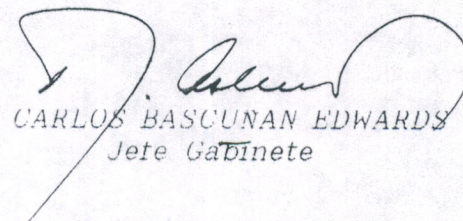 CARLOS BASCUÑAN EDWARDS
Jefe Gabinete